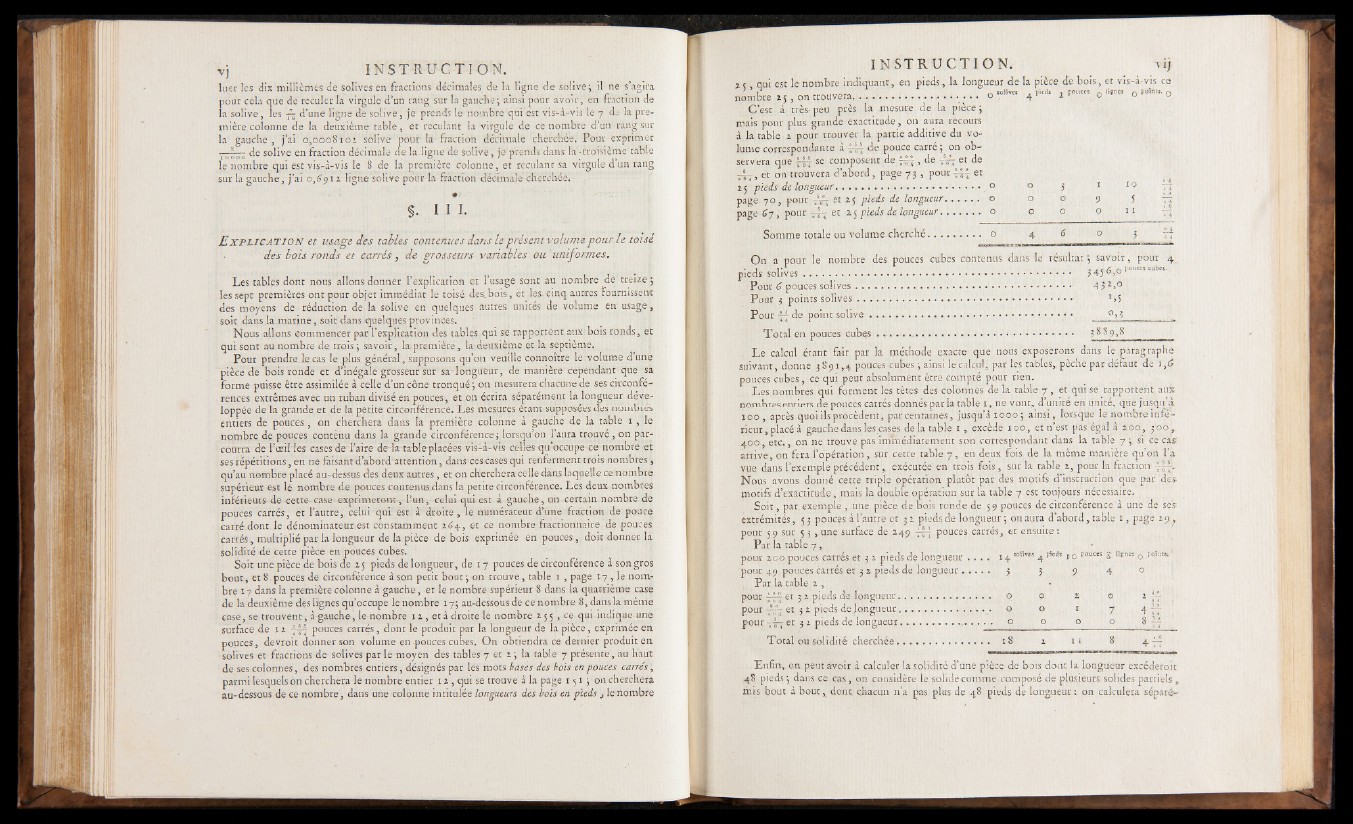 vj INSTRUCTION.
luer les dix millièmes de solives en fractions décimales de la ligne de solive; il ne s'agira
pour cela que de reculer la virgule d'un rang sur la gauche; ainsi pour avoir, en fraction de
la solive, les 7/10 d'une ligne de solive, je prends le nombre qui est vis-à-vis le 7 de la pre-
mière colonne de la deuxième table, et reculant la virgule de ce nombre d'un rang sur
la gauche, j'ai 0,0008102 solive pour la fraction décimale cherchée. Pour exprimer
8/10000 de solive en fraction décimale de la ligne de solive, je prends dans la troisième table
le nombre qui est vis-à-vis le 8 de la première colonne, et reculant sa virgule d'un rang
sur la gauche, j'ai 0,6912 ligne solive pour la fraction décimale cherchée.
§. III.
EXPLICATION et usage des tables contenues dans le présent volume pour le toisé
des bois ronds et carrés, de grosseurs variables ou uniformes.
Les tables dont nous allons donner l'explication et l'usage sont au nombre de treize;
les sept premières ont pour objet immédiat le toisé des bois, et les cinq autres fournissent
des moyens de réduction de la solive en quelques autres unités de volume en usage,
soit dans la marine, soit dans quelques provinces.
Nous allons commencer par l'explication des tables qui se rapportent aux bois ronds, et
qui sont au nombre de trois; savoir, la première, la deuxième et la septième.
Pour prendre le cas le plus général, supposons qu'on veuille connoître le volume d'une
pièce de bois ronde et d'inégale grosseur sur sa longueur, de manière cependant que sa
forme puisse être assimilée à celle d'un cône tronqué; on mesurera chacune de ses circonfé-
rences extrêmes avec un ruban divisé en pouces, et on écrira séparément la longueur déve-
loppée de la grande et de la petite circonférence. Les mesures étant supposées des nombres
entiers de pouces, on cherchera dans la première colonne à gauche de la table 1, le
nombre de pouces contenu dans la grande circonférence; lorsqu'on l'aura trouvé, on par-
courra de l'œil les cases de la table placées vis-à-vis celles qu'occupe ce nombre et
ses répétitions, en ne faisant d'abord attention, dans ces cases qui renferment trois nombres,
qu'au nombre placé au-dessus des deux autres, et on cherchera celle dans laquelle ce nombre
supérieur est le nombre de pouces contenus dans la petite circonférence. Les deux nombres
inférieurs de cette case exprimeront, l'un, celui qui est à gauche, un certain nombre de
pouces carrés, et l'autre, celui qui est à droite, le numérateur d'une fraction de pouce
carré dont le dénominateur est constamment 264, et ce nombre fractionnaire de pouces
carrés, multiplié par la longueur de la pièce de bois exprimée en pouces, doit donner la
solidité de cette pièce en pouces cubes.
Soit une pièce de bois de 25 pieds de longueur, de 17 pouces de circonférence à son gros
bout, et 8 pouces de circonférence à son petit bout; on trouve, table 1, page 17, le nom-
bre 17 dans la première colonne à gauche, et le nombre supérieur 8 dans la quatrième case
de la deuxième des lignes qu'occupe le nombre 17; au-dessous de ce nombre 8, dans la même
case, se trouvent, à gauche, le nombre 12, et à droite le nombre 255, ce qui indique une
surface de 12 255/264 pouces carrés, dont le produit par la longueur de la pièce, exprimée en
pouces, devroit donner son volume en pouces cubes. On obtiendra ce dernier produit en
solives et fractions de solives par le moyen des tables 7 et 2; la table 7 présente, au haut
de ses colonnes, des nombres entiers, désignés par les mots bases des bois en pouces carrés,
parmi lesquels on cherchera le nombre entier 12, qui se trouve à la page 151; on cherchera
au-dessous de ce nombre, dans une colonne intitulée longueurs des bois en pieds, le nombre
INSTRUCTION. vij
25, qui est le nombre indiquant, en pieds, la longueur de la pièce de bois, et vis-à-vis ce
nombre 25, on trouvera. . . . . 0 solives 4 pieds 2 pouces 0 lignes 0 points. 0
C'est à très peu près la mesure de la pièce;
mais pour plus grande exactitude, on aura recours
à la table 2 pour trouver la partie additive du vo-
lume correspondante à 255/264 de pouce carré; on ob-
servera que 255/264 se composent de 200/264, de 50/264 et de
5/264, et on trouvera d'abord, page 73, pour 200/264 et
25 pieds de longueur. . . . . 0 0 3 1 10
page 70, pour 50/264 et 25 pieds de longueur. . . . . 0 0 0 9 5
page 67, pour 5/264 et 25 pieds de longueur. . . . . 0 0 0 0 11
Somme totale ou volume cherché. . . . . 0 4 6 0 3
On a pour le nombre des pouces cubes contenus dans le résultat; savoir, pour 4
pieds solives . . . . . 3456,0 pouces cubes.
Pour 6 pouces solives . . . . . 432,0
Pour 3 points solives . . . . . 1,5
Pour de point solive . . . . . 0,3
Total en pouces cubes . . . . . 3889,8
Le calcul étant fait par la méthode exacte que nous exposerons dans le paragraphe
suivant, donne 3891,4 pouces cubes; ainsi le calcul, par les tables, pèche par défaut de 1,6
pouces cubes, ce qui peut absolument être compté pour rien.
Les nombres qui forment les têtes des colonnes de la table 7, et qui se rapportent aux
nombres entiers de pouces carrés donnés par la table 1, ne vont, d'unité en unité, que jusqu'à
100, après quoi ils procèdent, par centaines, jusqu'à 1000; ainsi, lorsque le nombre infé-
rieur, placé à gauche dans les cases de la table 1, excède 100, et n'est pas égal à 200, 300,
400, etc., on ne trouve pas immédiatement son correspondant dans la table 7; si ce cas
arrive, on fera l'opération, sur cette table 7, en deux fois de la même manière qu'on l'a
vue dans l'exemple précédent, exécutée en trois fois, sur la table 2, pour la fraction 255/264.
Nous avons donné cette triple opération plutôt par des motifs d'instruction que par des
motifs d'exactitude, mais la double opération sur la table 7 est toujours nécessaire.
Soit, par exemple, une pièce de bois ronde de 59 pouces de circonférence à une de ses
extrémités, 53 pouces à l'autre et 32 pieds de longueur; on aura d'abord, table 1, page 29,
pour 59 sur 53, une surface de 249 pouces carrés, et ensuite:
Par la table 7,
pour 200 pouces carrés et 32 pieds de longueur . . . . 14 solives 4 pieds 10 pouces 3 lignes 0 points.
pour 49 pouces carrés et 32 pieds de longueur . . . . . 3 3 9 4 0
Par la table 2,
pour et 32 pieds de longueur. . . . . 0 0 2 0 2
pour et 32 pieds de longueur. . . . . 0 0 1 7 4
pour et 32 pieds de longueur. . . . . 0 0 0 0 8
Total ou solidité cherchée . . . . . 18 2 11 8 4
Enfin, on peut avoir à calculer la solidité d'une pièce de bois dont la longueur excéderoit
48 pieds; dans ce cas, on considère le solide comme composé de plusieurs solides partiels,
mis bout à bout, dont chacun n'a pas plus de 48 pieds de longueur: on calculera séparé-